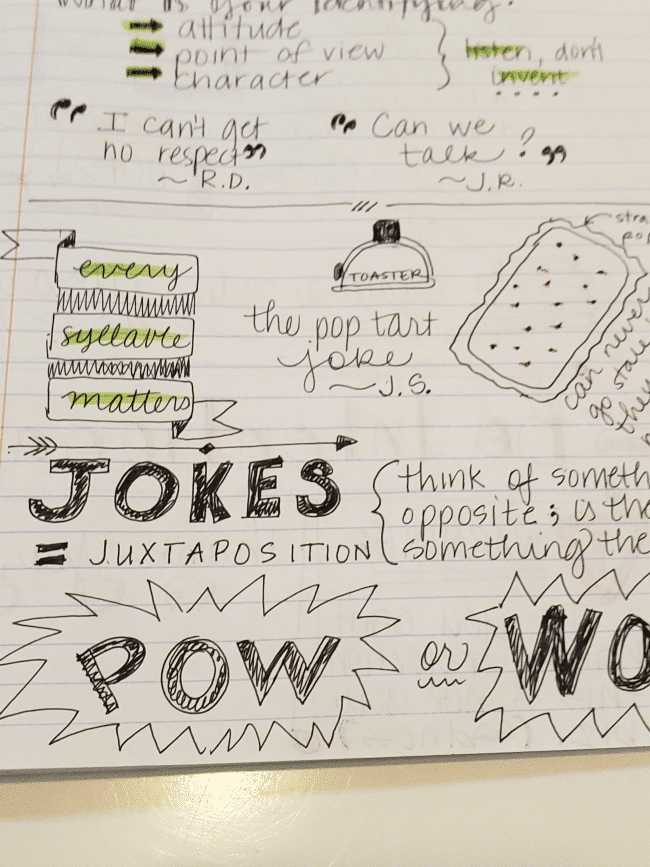 What is your identifying:
attitude
point of view
character
listen, don't
invent
" I can't get
no respect"
~ R.D.
" Can we
talk? "
~ J.R.
every
syllable
matters
TOASTER
the pop tart
joke
~ J.S.
can never
go stale
they
JOKES
= JUXTAPOSITION
think of
opposite; is the
something
POW
or